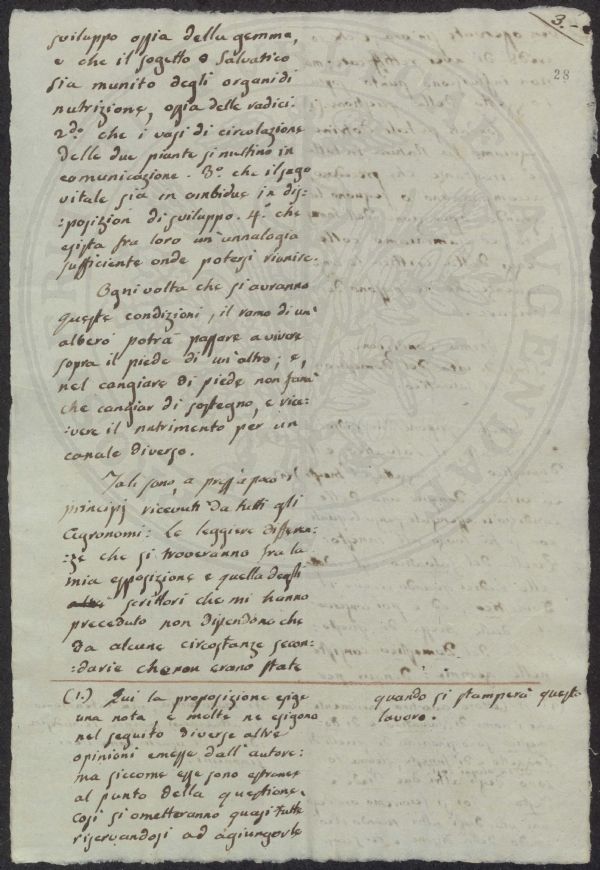 3.
28
sviluppo ossia della gemma,
e che il sogetto o salvatico
sia munito degli organi di
nutrizione, ossia delle radici.
2.do che i vasi di circolazione
delle due piante si mettino in
comunicazione. 3.o che il sego
vitale sia in ambidue in dis=
=posizion di sviluppo. 4.o che
esista fra loro un'annalogia
sufficiente onde potersi riunire.
Ogni volta che si avranno
queste condizioni, il ramo di un'
albero potrà passare a vivere
sopra il piede di un'altro; e,
nel cangiare di piede non farà
che cangiar di sostegno, e rice=
=vere il nutrimento per un
canale diverso.
Tali sono, a press'a poco i
principj ricevuti da tutti gli
Agronomi: Le leggiere differen=
=ze che si troveranno fra la
mia esposizione e quella degli
scrittori che mi hanno
preceduto non dipendono che
da alcune circostanze secon=
=darie che non erano state
(1.) Qui la proposizione esige
una nota, e molte ne esigono
nel seguito diverse altre
opinioni emesse dall'autore:
ma siccome esse sono estranee
al punto della questione,
così si ometteranno quasi tutte
riservandosi ad agiungerle
quando si stamperà questo
lavoro.